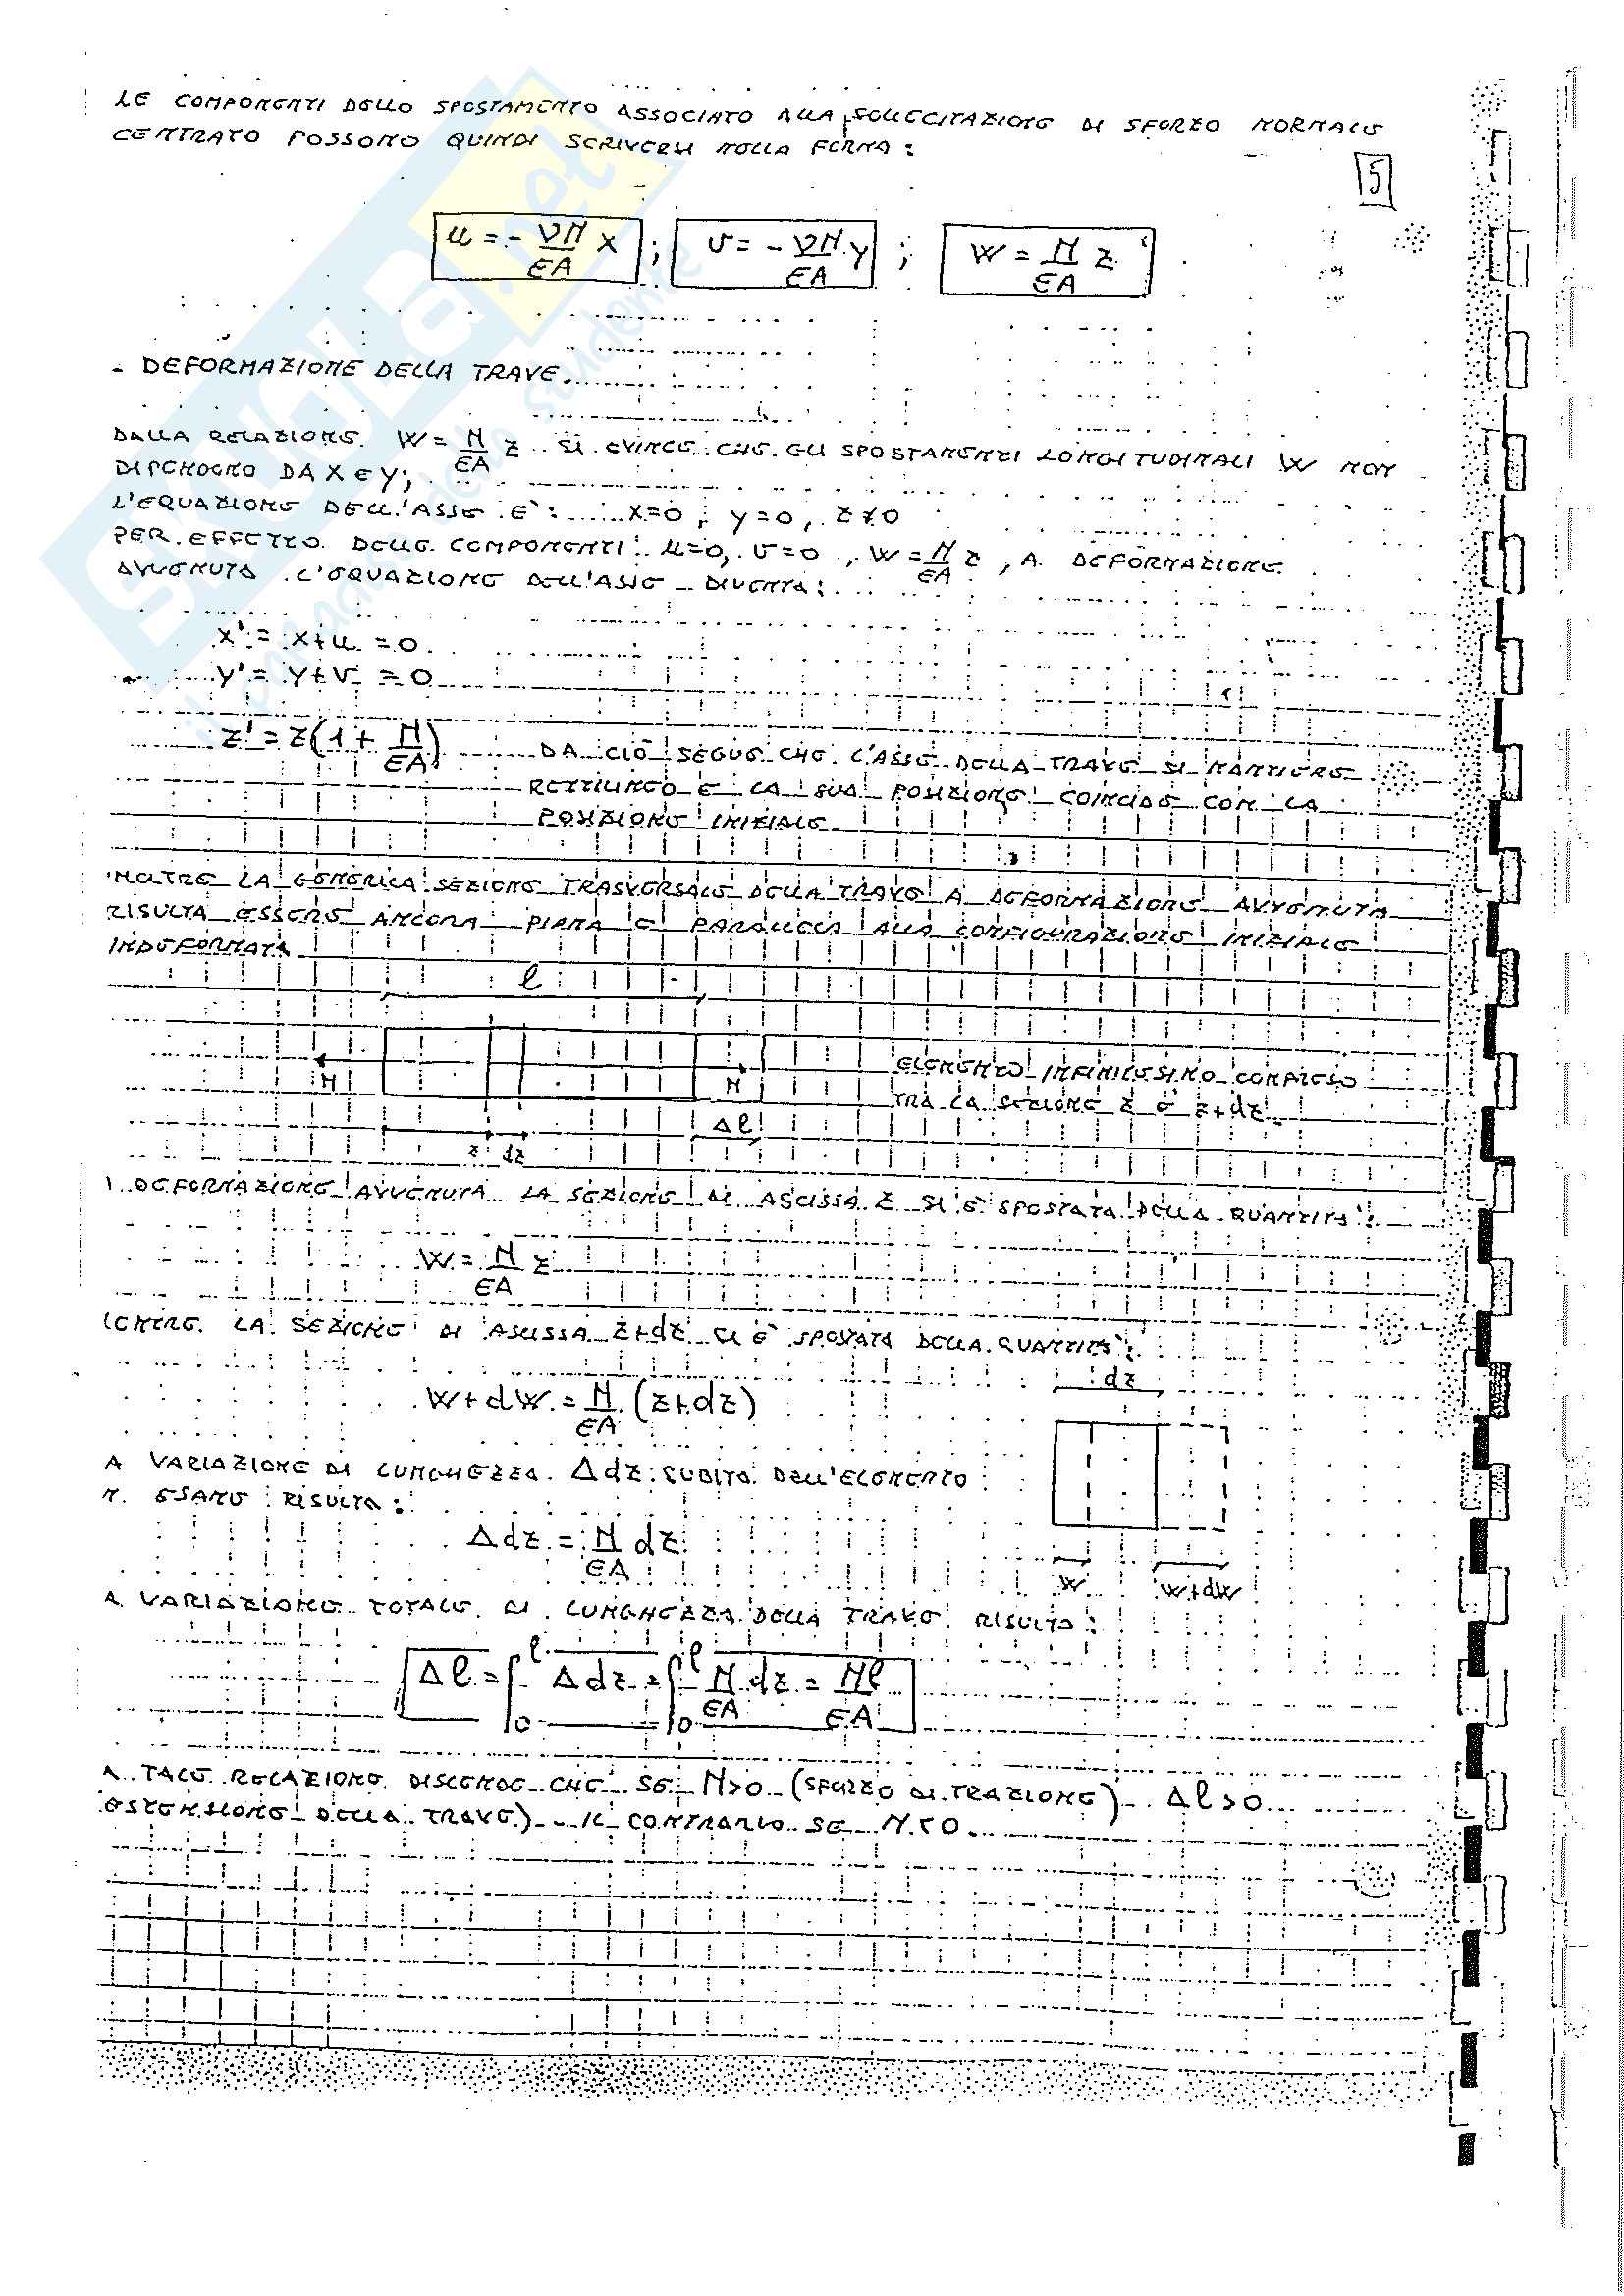 LE COMPONENTI DELLO SPOSTAMENTO ASSOCIATO ALLA SOLLECITAZIONE DI SFORZO NORMALE
CENTRATO POSSONO QUINDI SCRIVERSI NELLA FORMA:
5
u = - νN/EA x ; v = - νN/EA y ; w = N/EA z
- DEFORMAZIONE DELLA TRAVE.
DALLA RELAZIONE W = N/EA z SI EVINCE CHE GLI SPOSTAMENTI LONGITUDINALI W NON
DIPENDONO DA X E Y;
L'EQUAZIONE DELL'ASSE E': X=0, Y=0, Z≠0
PER EFFETTO DELLE COMPONENTI: u=0, v=0, W = N/EA z, A DEFORMAZIONE
AVVENUTA L'EQUAZIONE DELL'ASSE DIVENTA:
X' = X+u = 0
Y' = Y+v = 0
Z' = Z(1 + N/EA) DA CIÒ SEGUE CHE L'ASSE DELLA TRAVE SI MANTIENE
RETTILINEO E LA SUA POSIZIONE COINCIDE CON LA
POSIZIONE INIZIALE.
INOLTRE LA GENERICA SEZIONE TRASVERSALE DELLA TRAVE A DEFORMAZIONE AVVENUTA
RISULTA ESSERE ANCORA PIANA E PARALLELA ALLA CONFIGURAZIONE INIZIALE
INDEFORMATA
l
N N
ELEMENTO INFINITESIMO COMPRESO
TRA LA SEZIONE Z E Z+dZ
Δl
z dz
DEFORMAZIONE AVVENUTA LA SEZIONE DI ASCISSA Z SI È SPOSTATA DELLA QUANTITÀ:
W = N/EA z
MENTRE LA SEZIONE DI ASCISSA Z+dZ SI È SPOSTATA DELLA QUANTITÀ:
W+dW = N/EA (z+dz)
dz
A VARIAZIONE DI LUNGHEZZA Δdz SUBITA DELL'ELEMENTO
N ESAME RISULTA:
Δdz = N/EA dz
W W+dW
A VARIAZIONE TOTALE DI LUNGHEZZA DELLA TRAVE RISULTA:
Δl = ∫₀ˡ Δdz = ∫₀ˡ N/EA dz = Nl/EA
A TALE RELAZIONE DISCENDE CHE SE N>0 (SFORZO DI TRAZIONE) Δl>0
ESTENSIONE DELLA TRAVE) IL CONTRARIO SE N<0